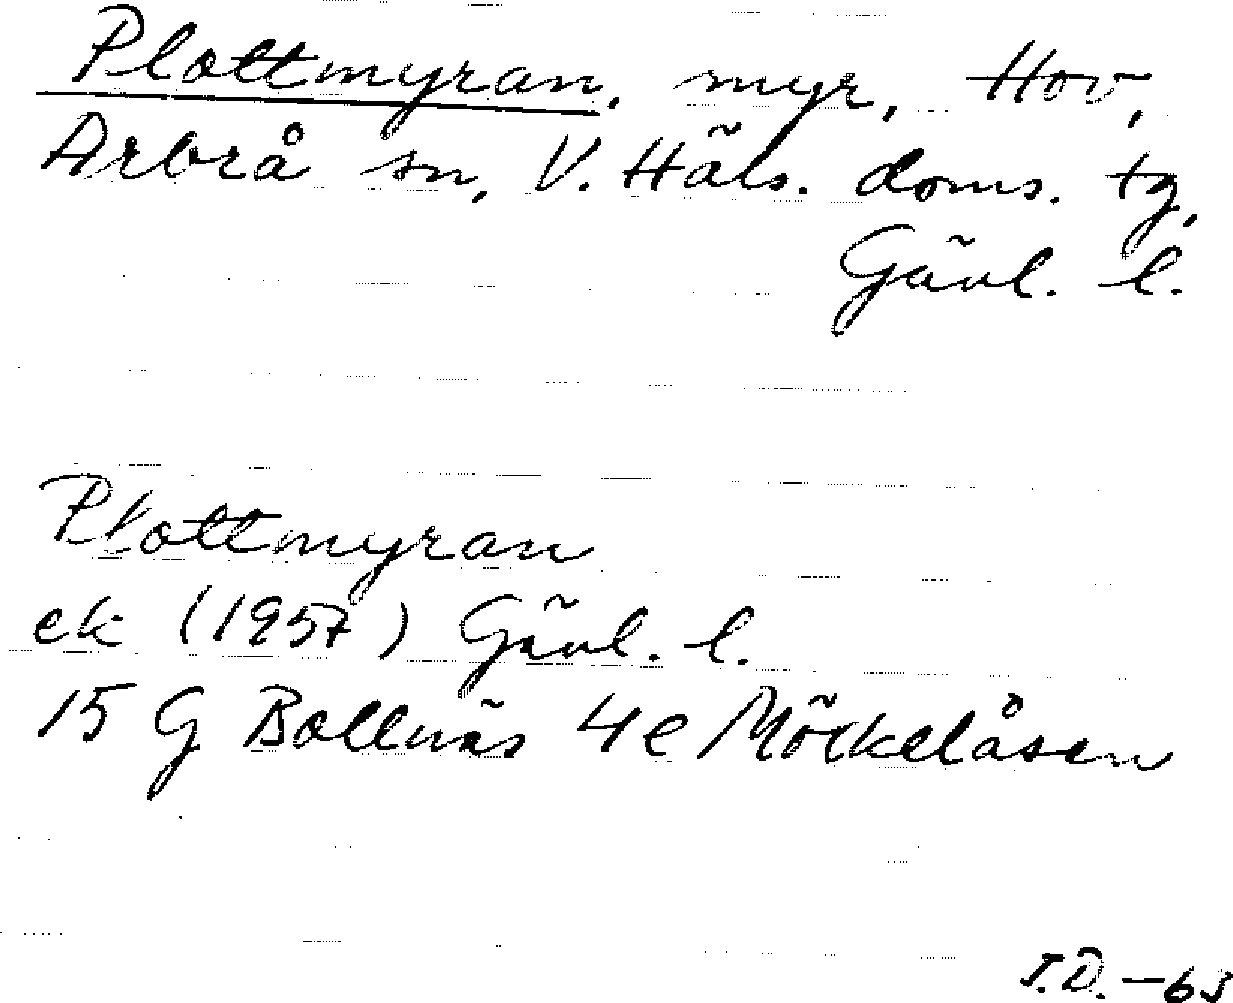 Plottmyran, myr, Hov,
Arbrå sn, V. Häls. doms. tg,
Gävl. l.
Plottmyran
ek (1957) Gävl. l.
15 G Bollnäs 4e Möckelåsen
I.D. -63